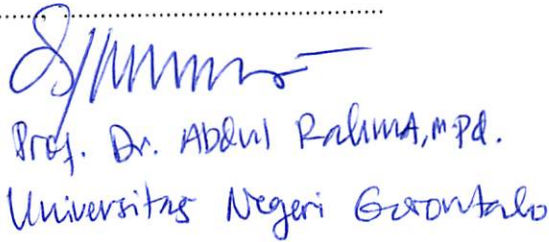 Prof. Dr. Abdul Rahmat, M.Pd.
Universitas Negeri Gorontalo